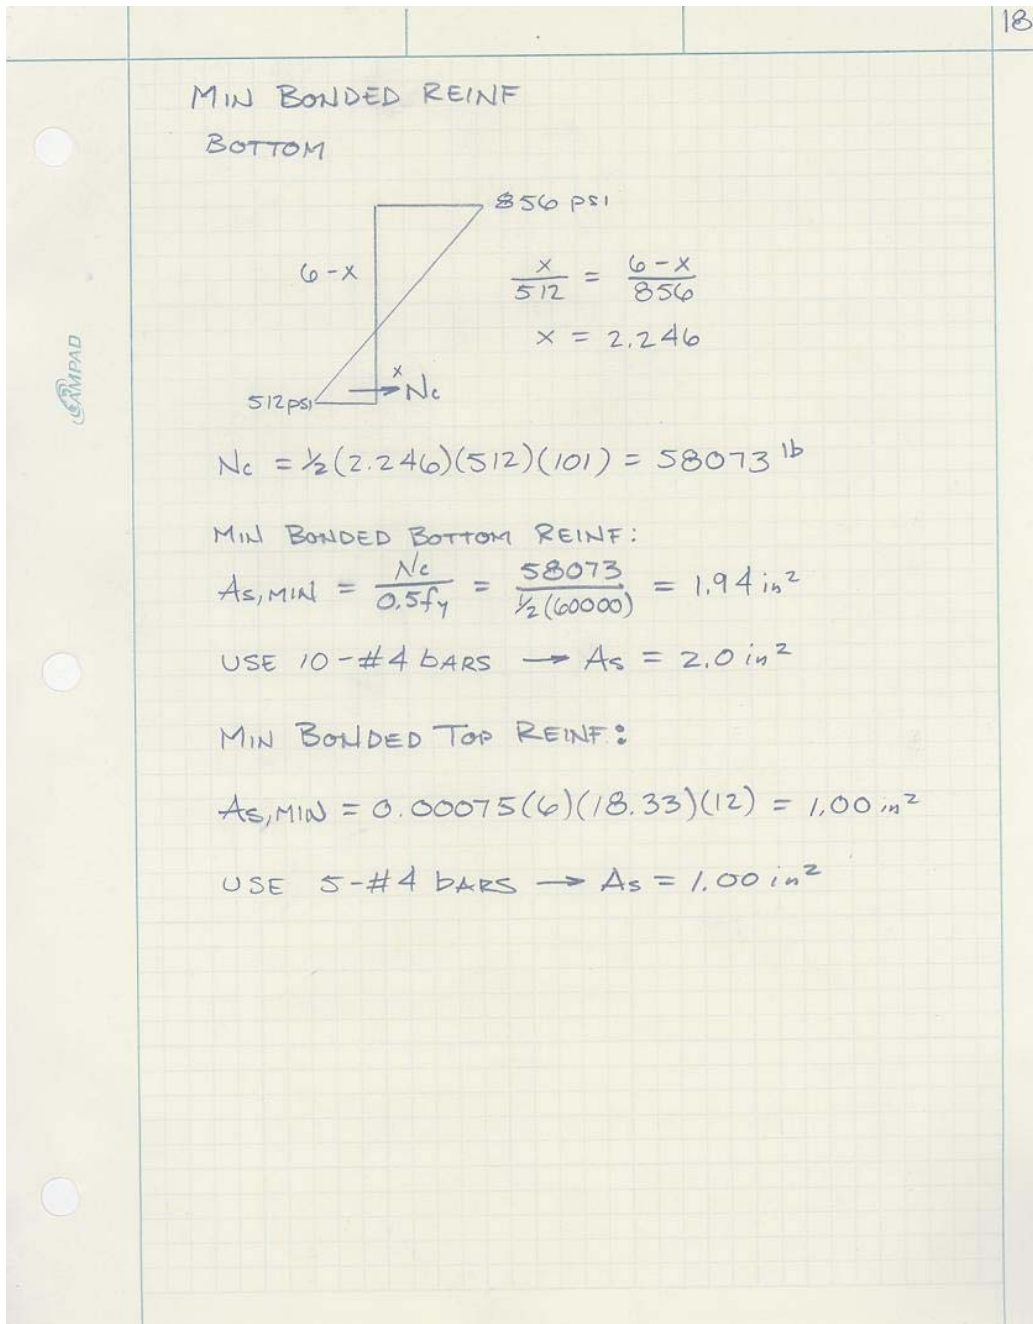 18
MIN BONDED REINF
BOTTOM
856 psi
6-x
x/512 = (6-x)/856
x = 2.246
x
512psi
Nc
AMPAD
Nc = ½(2.246)(512)(101) = 58073 lb
MIN BONDED BOTTOM REINF:
As,MIN = Nc/0.5fy = 58073/½(60000) = 1.94 in²
USE 10-#4 bARS → As = 2.0 in²
MIN BONDED TOP REINF:
As,MIN = 0.00075(6)(18.33)(12) = 1.00 in²
USE 5-#4 bARS → As = 1.00 in²